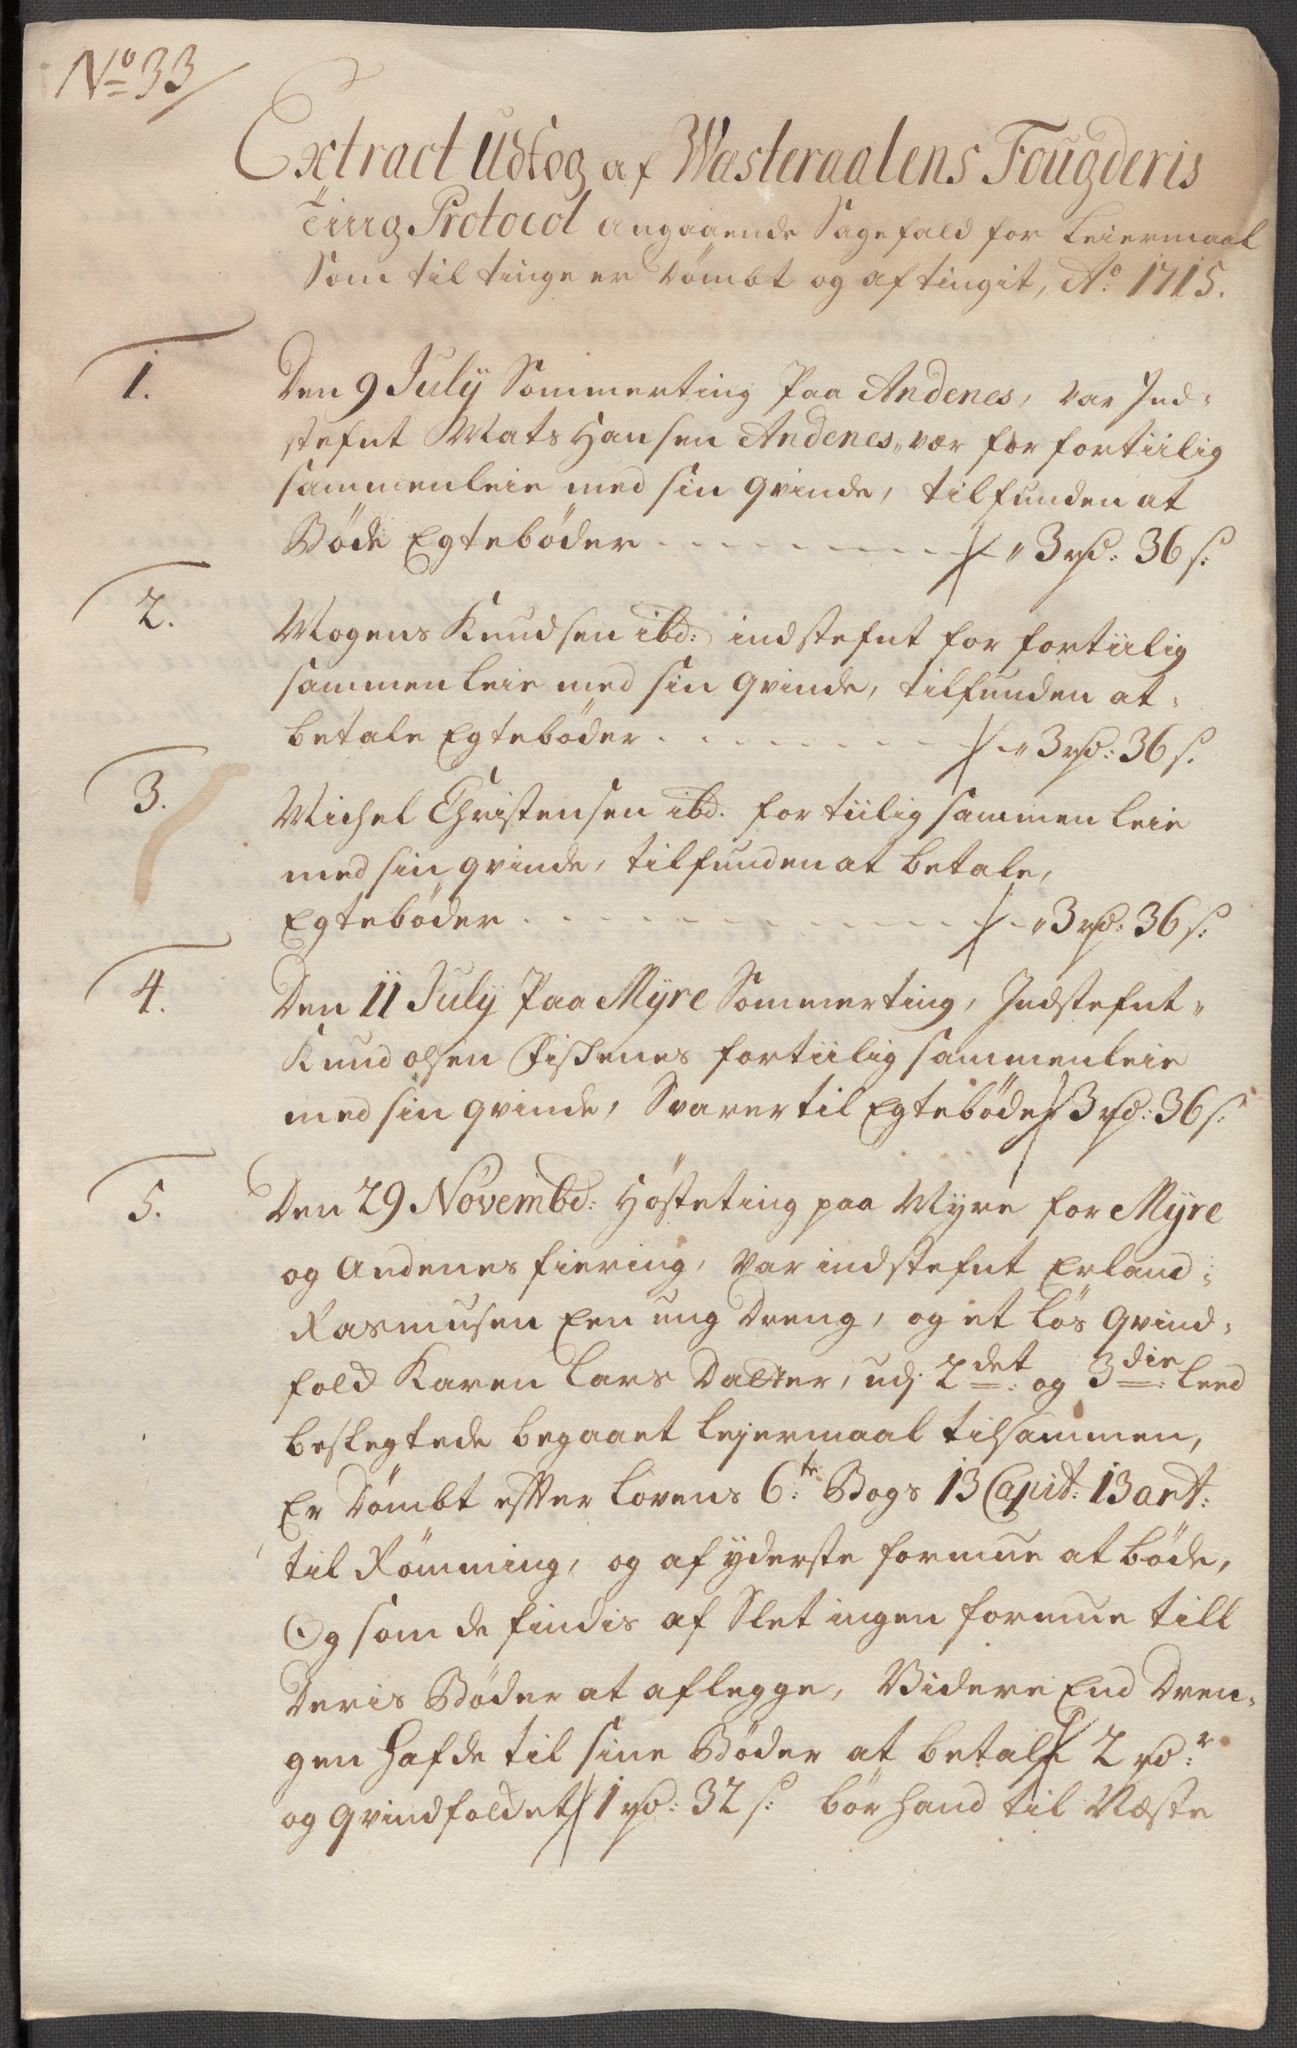 No 33
Extract Udtog af Wæsteraalens Fougderis
Ting Protocol angaaende Sagefald for Leiermaal
Som til tinge er dömbt og aftingit, Ao 1715.
1.
Den 9 July Sommerting Paa Andenes, var Ind-
stefnt Mats Hansen Andenes, var for fortiilig
sammenleie med sin qvinde, tilfunden at
Böde Egteböder - - - - - - - - - 3 rd: 36 s:
2.
Mogens Knudsen ibd: indstefnt for fortiilig
sammenleie med sin qvinde, tilfunden at
betale Egteböder - - - - - - - - 3 rd: 36 s.
3.
Michel Christensen ibd. for tiilig sammenleie
med sin qvinde, tilfunden at betale,
Egteböder - - - - - - - - - - - 3 rd: 36 s:
4.
Den 11 July Paa Myre Sommerting, Indstefnt
Knud olsen Fiskenes fortiilig sammenleie
med sin qvinde, Svarer til Egteböder 3 rd: 36 s:
5.
Den 29 Novembd: Hösteting paa Myre for Myre
og Andenes fiering, var indstefnt Erland
Rasmusen Een ung Dreng, og et lös qvind-
fold Karen Lars Datter, udj 2det og 3die Leed
beslegtede begaaet lejermaal tilsammen,
Er Dömbt effter Lovens 6te Bogs 13 Capit: 13 art:
til Römming, og af yderste formue at böde,
Og som de findis af Slet ingen formue till
Deris Böder at aflegge, Videre End Dren-
gen hafde til sine Böder at betale 2 rd:r
og qvindfoldet 1 rd: 32 s: bör hand til Næste